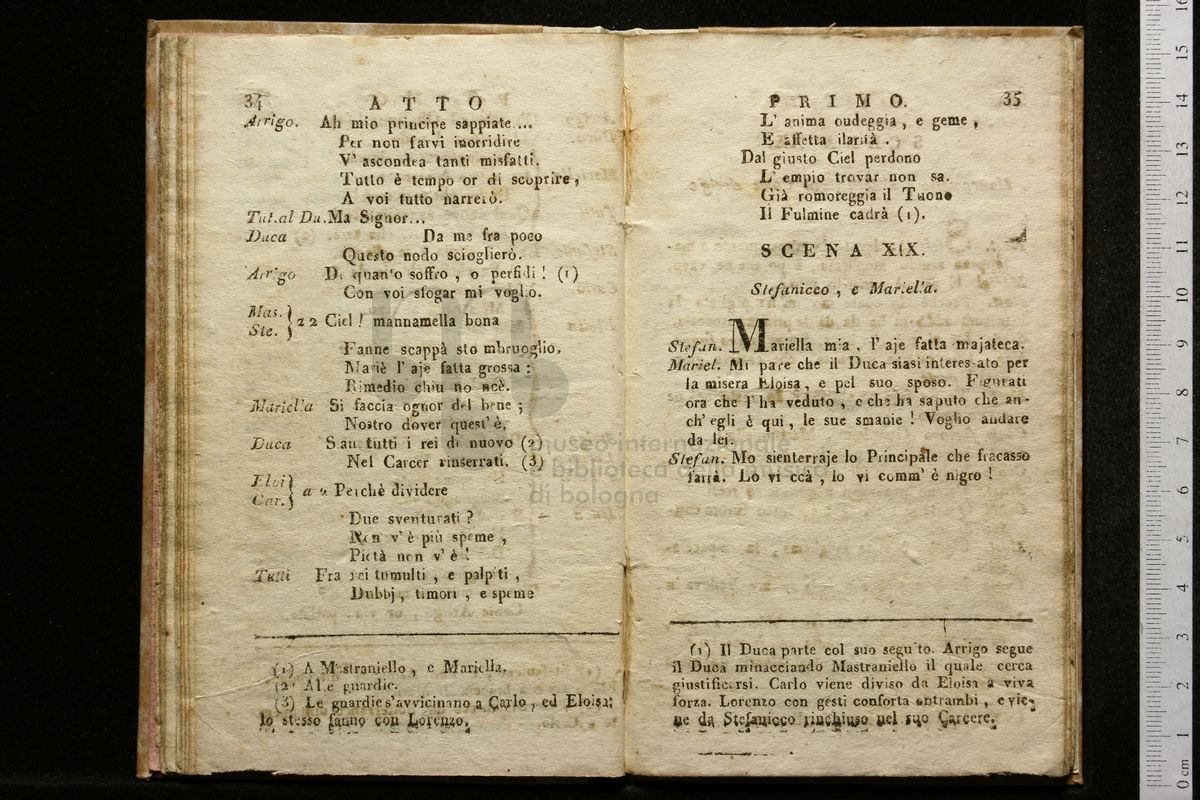 34 ATTO
Arrigo. Ah mio principe sappiate....
Per non farvi inorridire
V' ascondea tanti misfatti.
Tutto è tempo or di scoprire,
A voi tutto narrerò.
Tut.al Du. Ma Signor...
Duca Da me fra poco
Questo nodo scioglierò.
Arrigo Di quanto soffro, o perfidi! (1)
Con voi sfogar mi voglio.
Mas.
Ste. } a 2 Ciel! mannamella bona
Fanne scappà sto mbruoglio,
Mariè l' aje fatta grossa:
Rimedio chiu no ncè.
Mariella Si faccia ognor del bene;
Nostro dover quest' è,
Duca Sian tutti i rei di nuovo (2)
Nel Carcer rinserrati. (3)
Eloi
Car. } a 2 Perchè dividere
Due sventurati?
Non v' è più speme,
Pietà non v' è!
Tutti Fra rei tumulti, e palpiti,
Dubbj, timori, e speme
(1) A Mastraniello, e Mariella.
(2) Alle guardie.
(3) Le guardie s'avvicinano a Carlo, ed Eloisa;
lo stesso fanno con Lorenzo.
PRIMO. 35
L' anima ondeggia, e geme,
E affetta ilarità.
Dal giusto Ciel perdono
L' empio trovar non sa.
Già romoreggia il Tuono
Il Fulmine cadrà (1).
SCENA XIX.
Stefanicco, e Mariella.
Stefan. Mariella mia, l' aje fatta majateca.
Mariel. Mi pare che il Duca siasi interessato per
la misera Eloisa, e pel suo sposo. Figurati
ora che l' ha veduto, e che ha saputo che an-
ch' egli è qui, le sue smanie! Voglio andare
da lei.
Stefan. Mo sienterraje lo Principale che fracasso
farrà. Lo vi ccà, lo vi comm' è nigro!
(1) Il Duca parte col suo seguito. Arrigo segue
il Duca minacciando Mastraniello il quale cerca
giustificarsi. Carlo viene diviso da Eloisa a viva
forza. Lorenzo con gesti conforta entrambi, e vie-
ne da Stefanicco rinchiuso nel suo Carcere.
museo internazionale
e biblioteca della musica
di bologna
0 cm 1 2 3 4 5 6 7 8 9 10 11 12 13 14 15 16